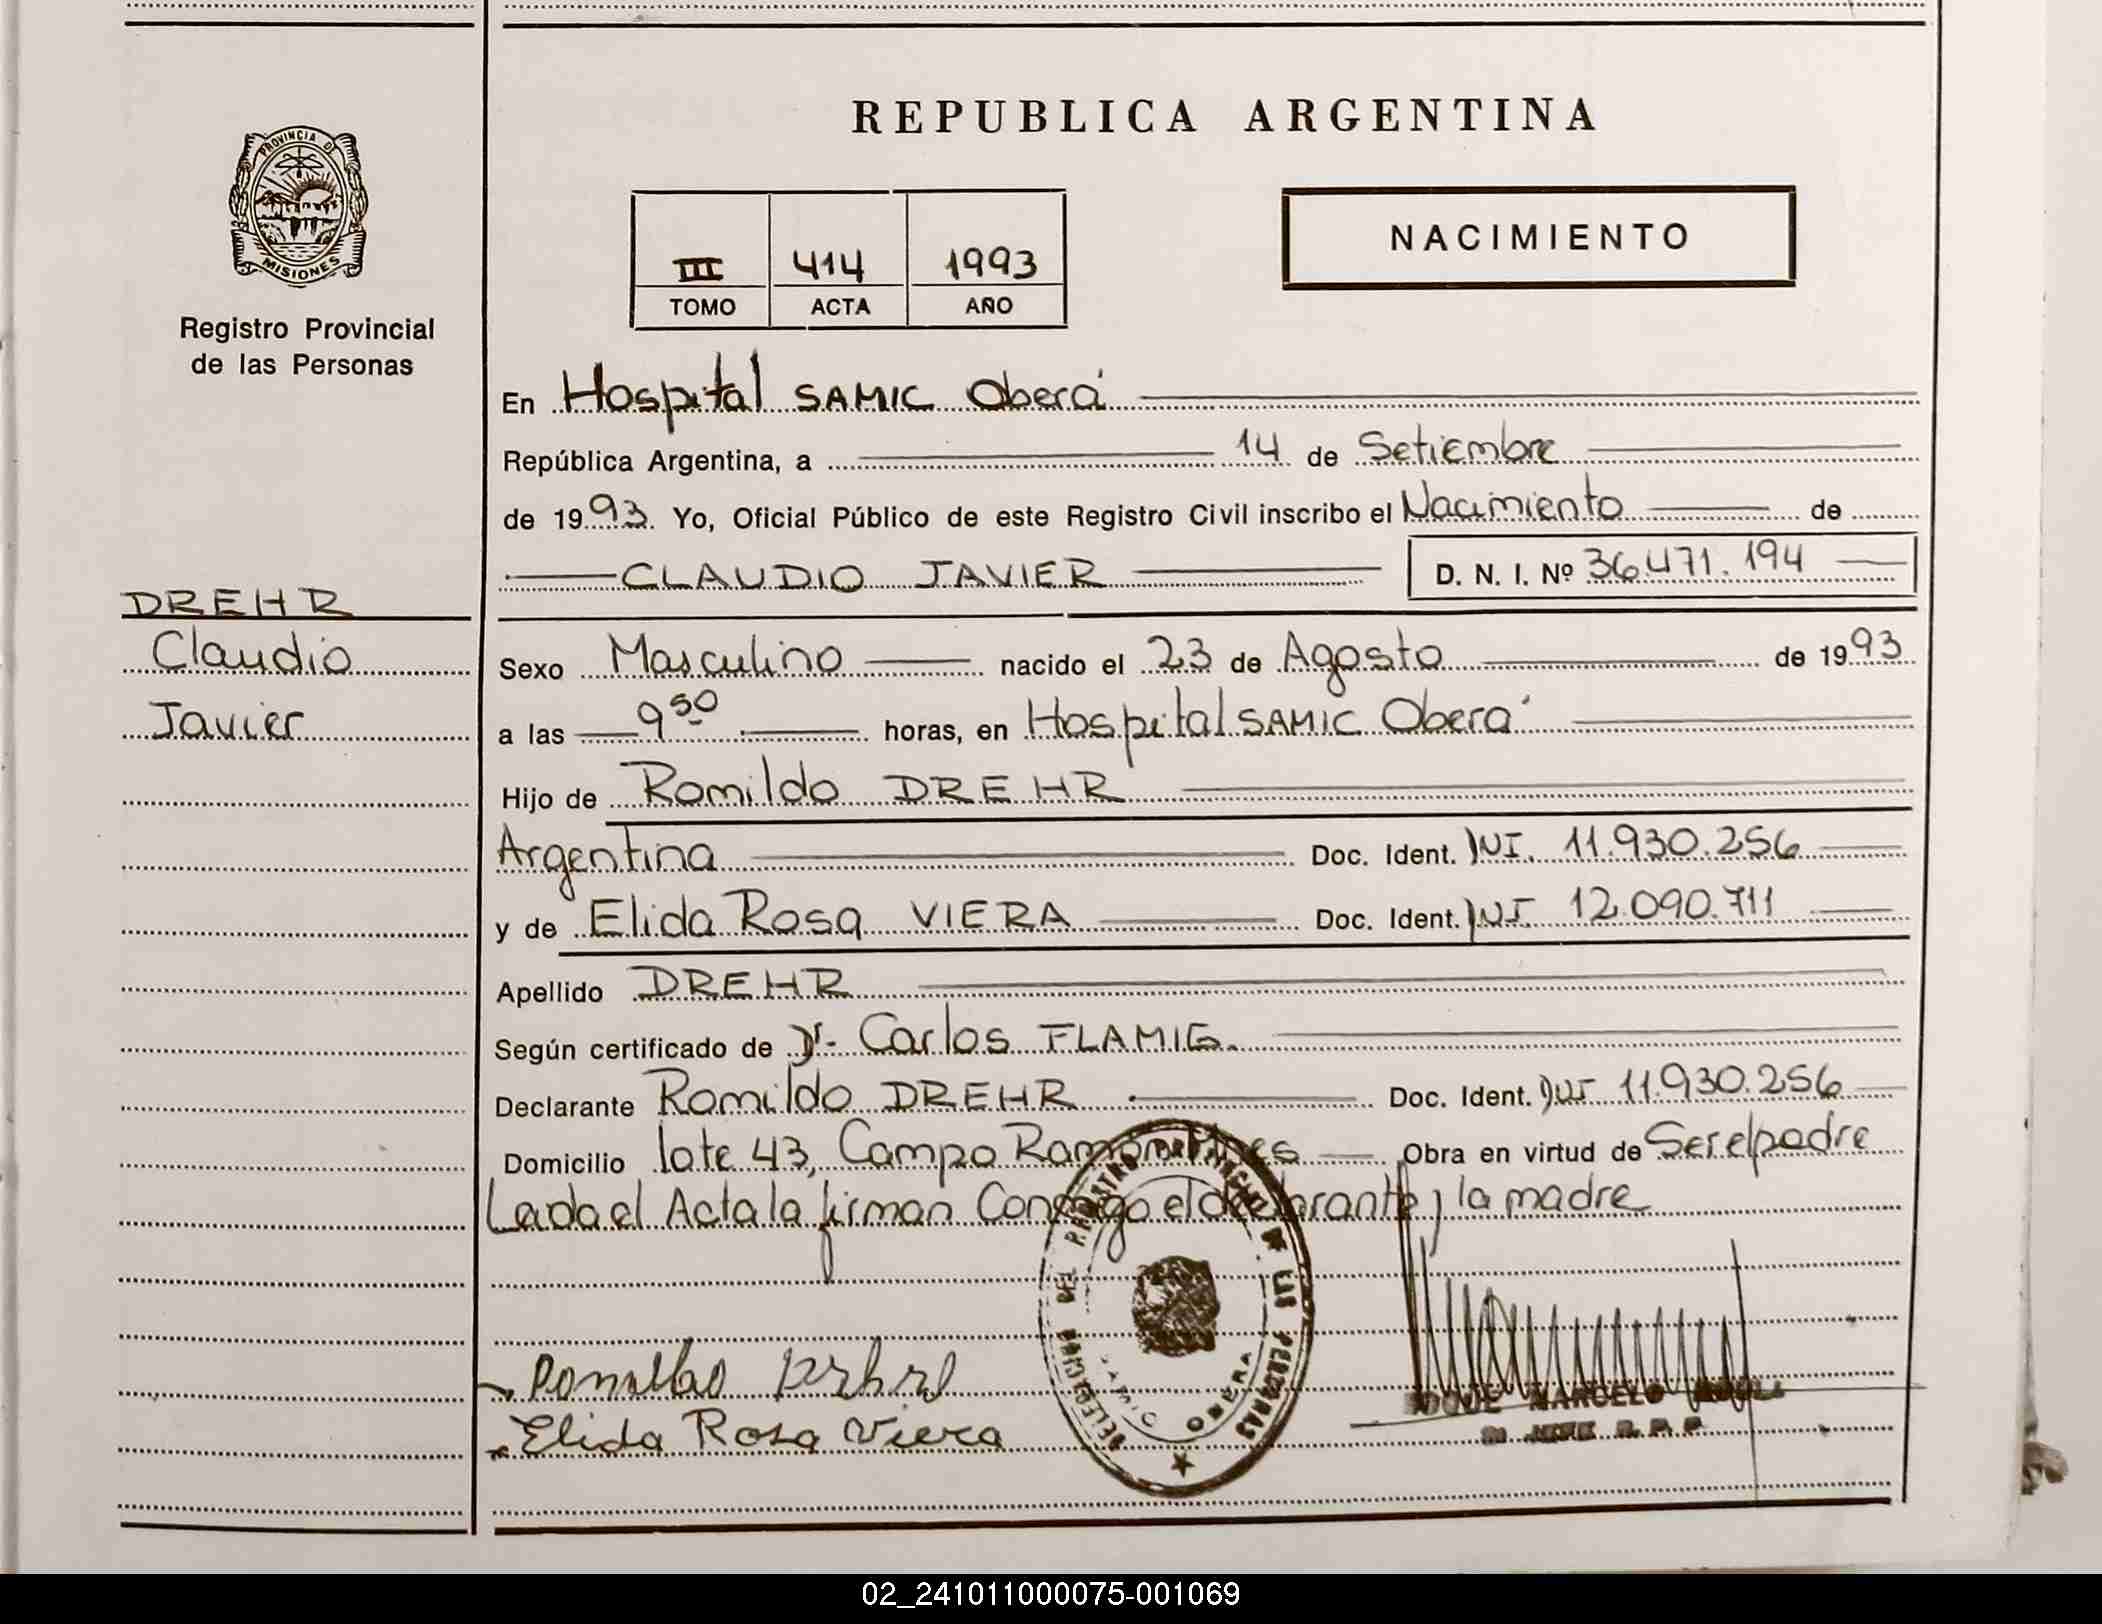 REPUBLICA ARGENTINA
PROVINCIA DE
MISIONES
Registro Provincial
de las Personas
III 414 1993
TOMO ACTA AÑO
NACIMIENTO
En Hospital SAMIC Oberá
República Argentina, a 14 de Setiembre
de 1993. Yo, Oficial Público de este Registro Civil inscribo el Nacimiento de
CLAUDIO JAVIER D. N. I. Nº 36.471.194
DREHR
Claudio
Javier
Sexo Masculino nacido el 23 de Agosto de 1993
a las 9 50 horas, en Hospital SAMIC Oberá
Hijo de Romildo DREHR
Argentina Doc. Ident. DNI. 11.930.256
y de Elida Rosa VIERA Doc. Ident. DNI 12.090.711
Apellido DREHR
Según certificado de Dr. Carlos FLAMIG.
Declarante Romildo DREHR Doc. Ident. DNI 11.930.256
Domicilio lote 43, Campo Ramón Mnes Obra en virtud de Ser el padre
Leda el Acta la firman Conmigo el declarante y la madre
Elida Rosa Viera
DELEGACION DEL REGISTRO PROVINCIAL DE LAS PERSONAS
OBERA
MARCELO
02_241011000075-001069